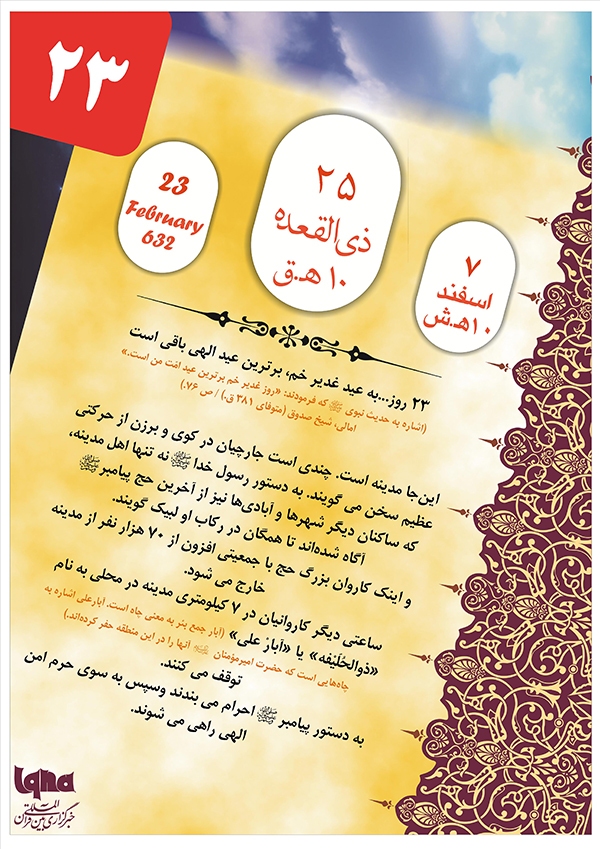 ۲۳
23
February
632
۲۵
ذی‌القعده
۱۰ هـ.ق
۷
اسفند
۱۰هـ.ش
۲۳ روز...به عید غدیر خم، برترین عید الهی باقی است
(اشاره به حدیث نبوی ﷺ که فرمودند: «روز غدیر خم برترین عید امت من است.»
امالی، شیخ صدوق (متوفای ۳۸۱ ق.) / ص ۷۶.)
این‌جا مدینه است. چندی است جارچیان در کوی و برزن از حرکتی
عظیم سخن می گویند. به دستور رسول خدا ﷺ نه تنها اهل مدینه،
که ساکنان دیگر شهرها و آبادی‌ها نیز از آخرین حج پیامبر ﷺ
آگاه شده‌اند تا همگان در رکاب او لبیک گویند.
و اینک کاروان بزرگ حج با جمعیتی افزون از ۷۰ هزار نفر از مدینه
خارج می شود.
ساعتی دیگر کاروانیان در ۷ کیلومتری مدینه در محلی به نام
«ذوالحُلَیْفه» یا «آبار علی» (آبار جمع بئر به معنی چاه است. آبارعلی اشاره به
چاه‌هایی است که حضرت امیرمؤمنان آنها را در این منطقه حفر کرده‌اند.)
توقف می کنند.
به دستور پیامبر ﷺ احرام می بندند وسپس به سوی حرم امن
الهی راهی می شوند.
iqna
خبرگزاری بین‌المللی قرآن